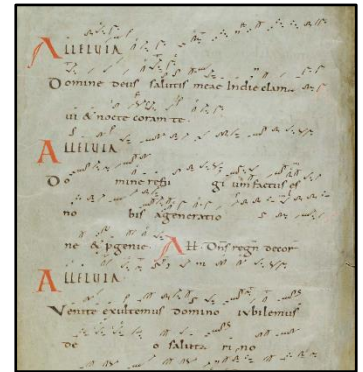 ALLELUIA
Domine deus salutis meae Indie clam
ui & nocte coram te.
ALLELUIA
Do mine refu gi um factus es
no bis ageneratio
ne & pgenie All. Dns regn decor
ALLELUIA
Venite exultemus domino iubilemus
de o saluta ri no